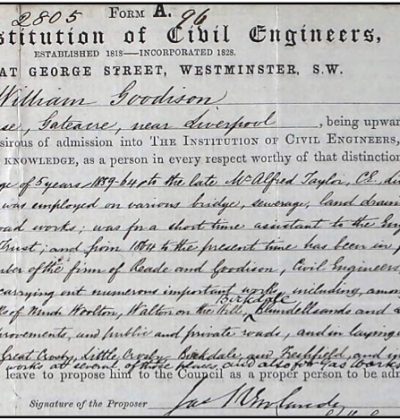 2805 FORM A. 96
stitution of Civil Engineers,
ESTABLISHED 1818—INCORPORATED 1828.
AT GEORGE STREET, WESTMINSTER, S.W.
William Goodison
se, Gateacre, near Liverpool, being upwar
sirous of admission into THE INSTITUTION OF CIVIL ENGINEERS,
KNOWLEDGE, as a person in every respect worthy of that distinction
ge of 5 years 1859-64 to the late Mr Alfred Taylor, C.E. di
was employed on various bridge, sewerage, land drain
oad works; was for a short time assistant to the Eng
Trust; and from 1864 to the present time has been in p
ber of the firm of Reade and Goodison, Civil Engineers,
carrying out numerous important works, including, amon
Birkdale
of Much Woolton, Walton on the Hill, Blundellsands and
provements, and public and private roads, and in laying
Great Crosby, Little Crosby, Birkdale, and Freshfield, and in
works at several of those places, and also for Gas Works
leave to propose him to the Council as a proper person to be adm
Signature of the Proposer